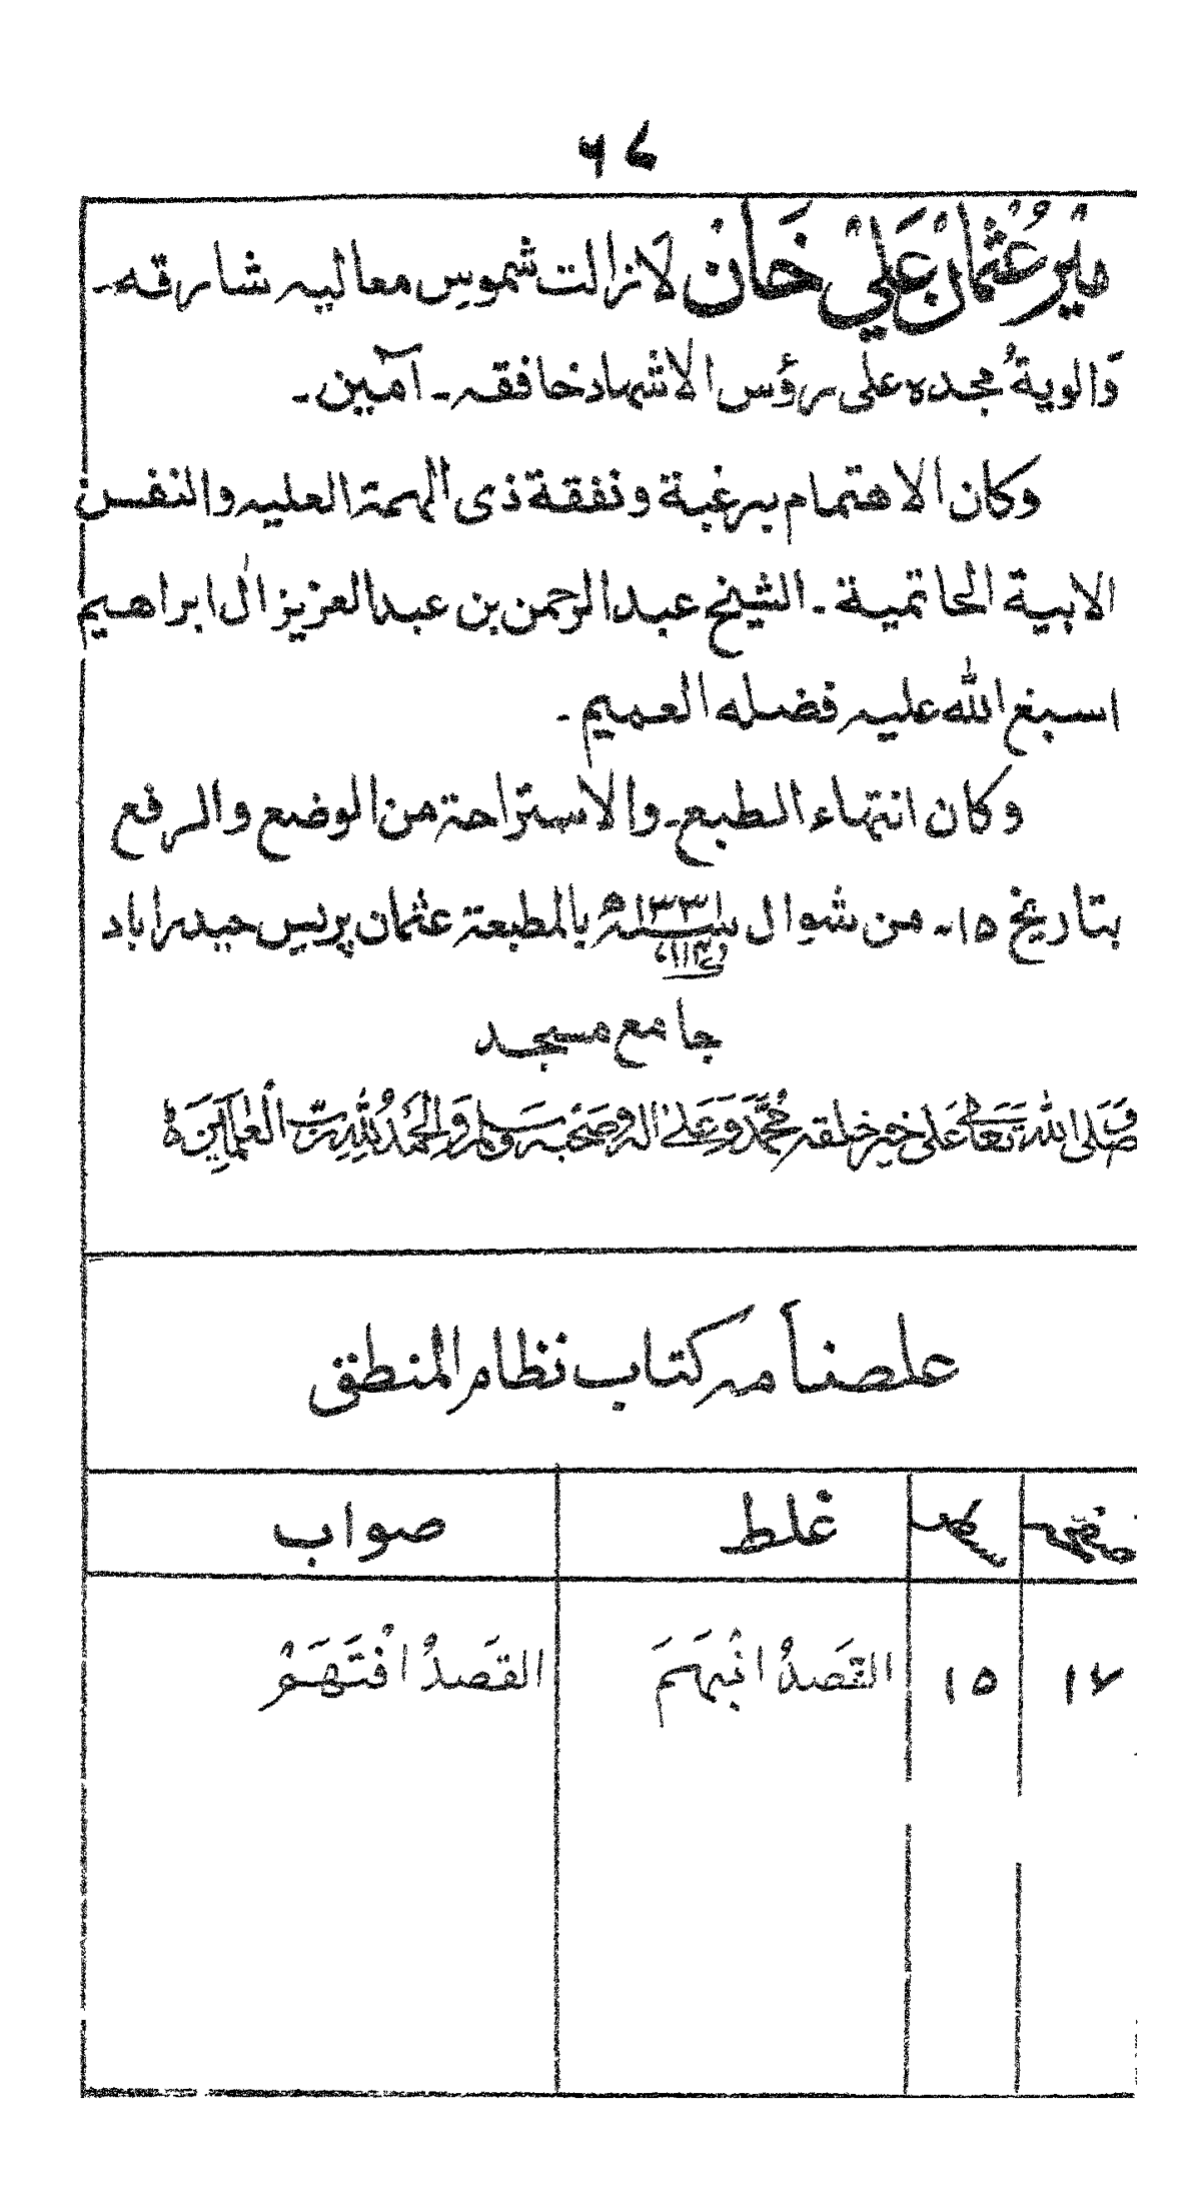 ٦٤
مِيْر عُثْمَانْ عَلِيْ خَانْ لا زالت شموس معاليه شارقه۔
وَالويةُ مجده على رؤس الاشهاد خافقه۔ آمين۔
وكان الاهتمام برغبة ونفقة ذى الهمة العليه والنفس
الابية الحاتمية۔ الشيخ عبد الرحمن بن عبد العزيز ال ابراهيم
اسبغ الله عليه فضله العميم۔
وكان انتهاء الطبع۔ والاستراحة من الوضع والرفع
بتاريخ ١٥۔ من شوال سنة ١٣٣١ﻫ بالمطبعة عثمان پريس حيدراباد
جامع مسجد
وَصَلى الله تَعَالى عَلى خير خلقه مُحَمَّد وَعَلى اله وصَحبه وسَلم وَالحَمدُ لله رَبّ الْعٰلَمِيْنَ ۃ
غلطنامہ کتاب نظام المنطق
صفحه
سطر
غلط
صواب
١٧
١٥
القَصدُ انْبَهَمَ
القَصدُ افْتَهَمْ